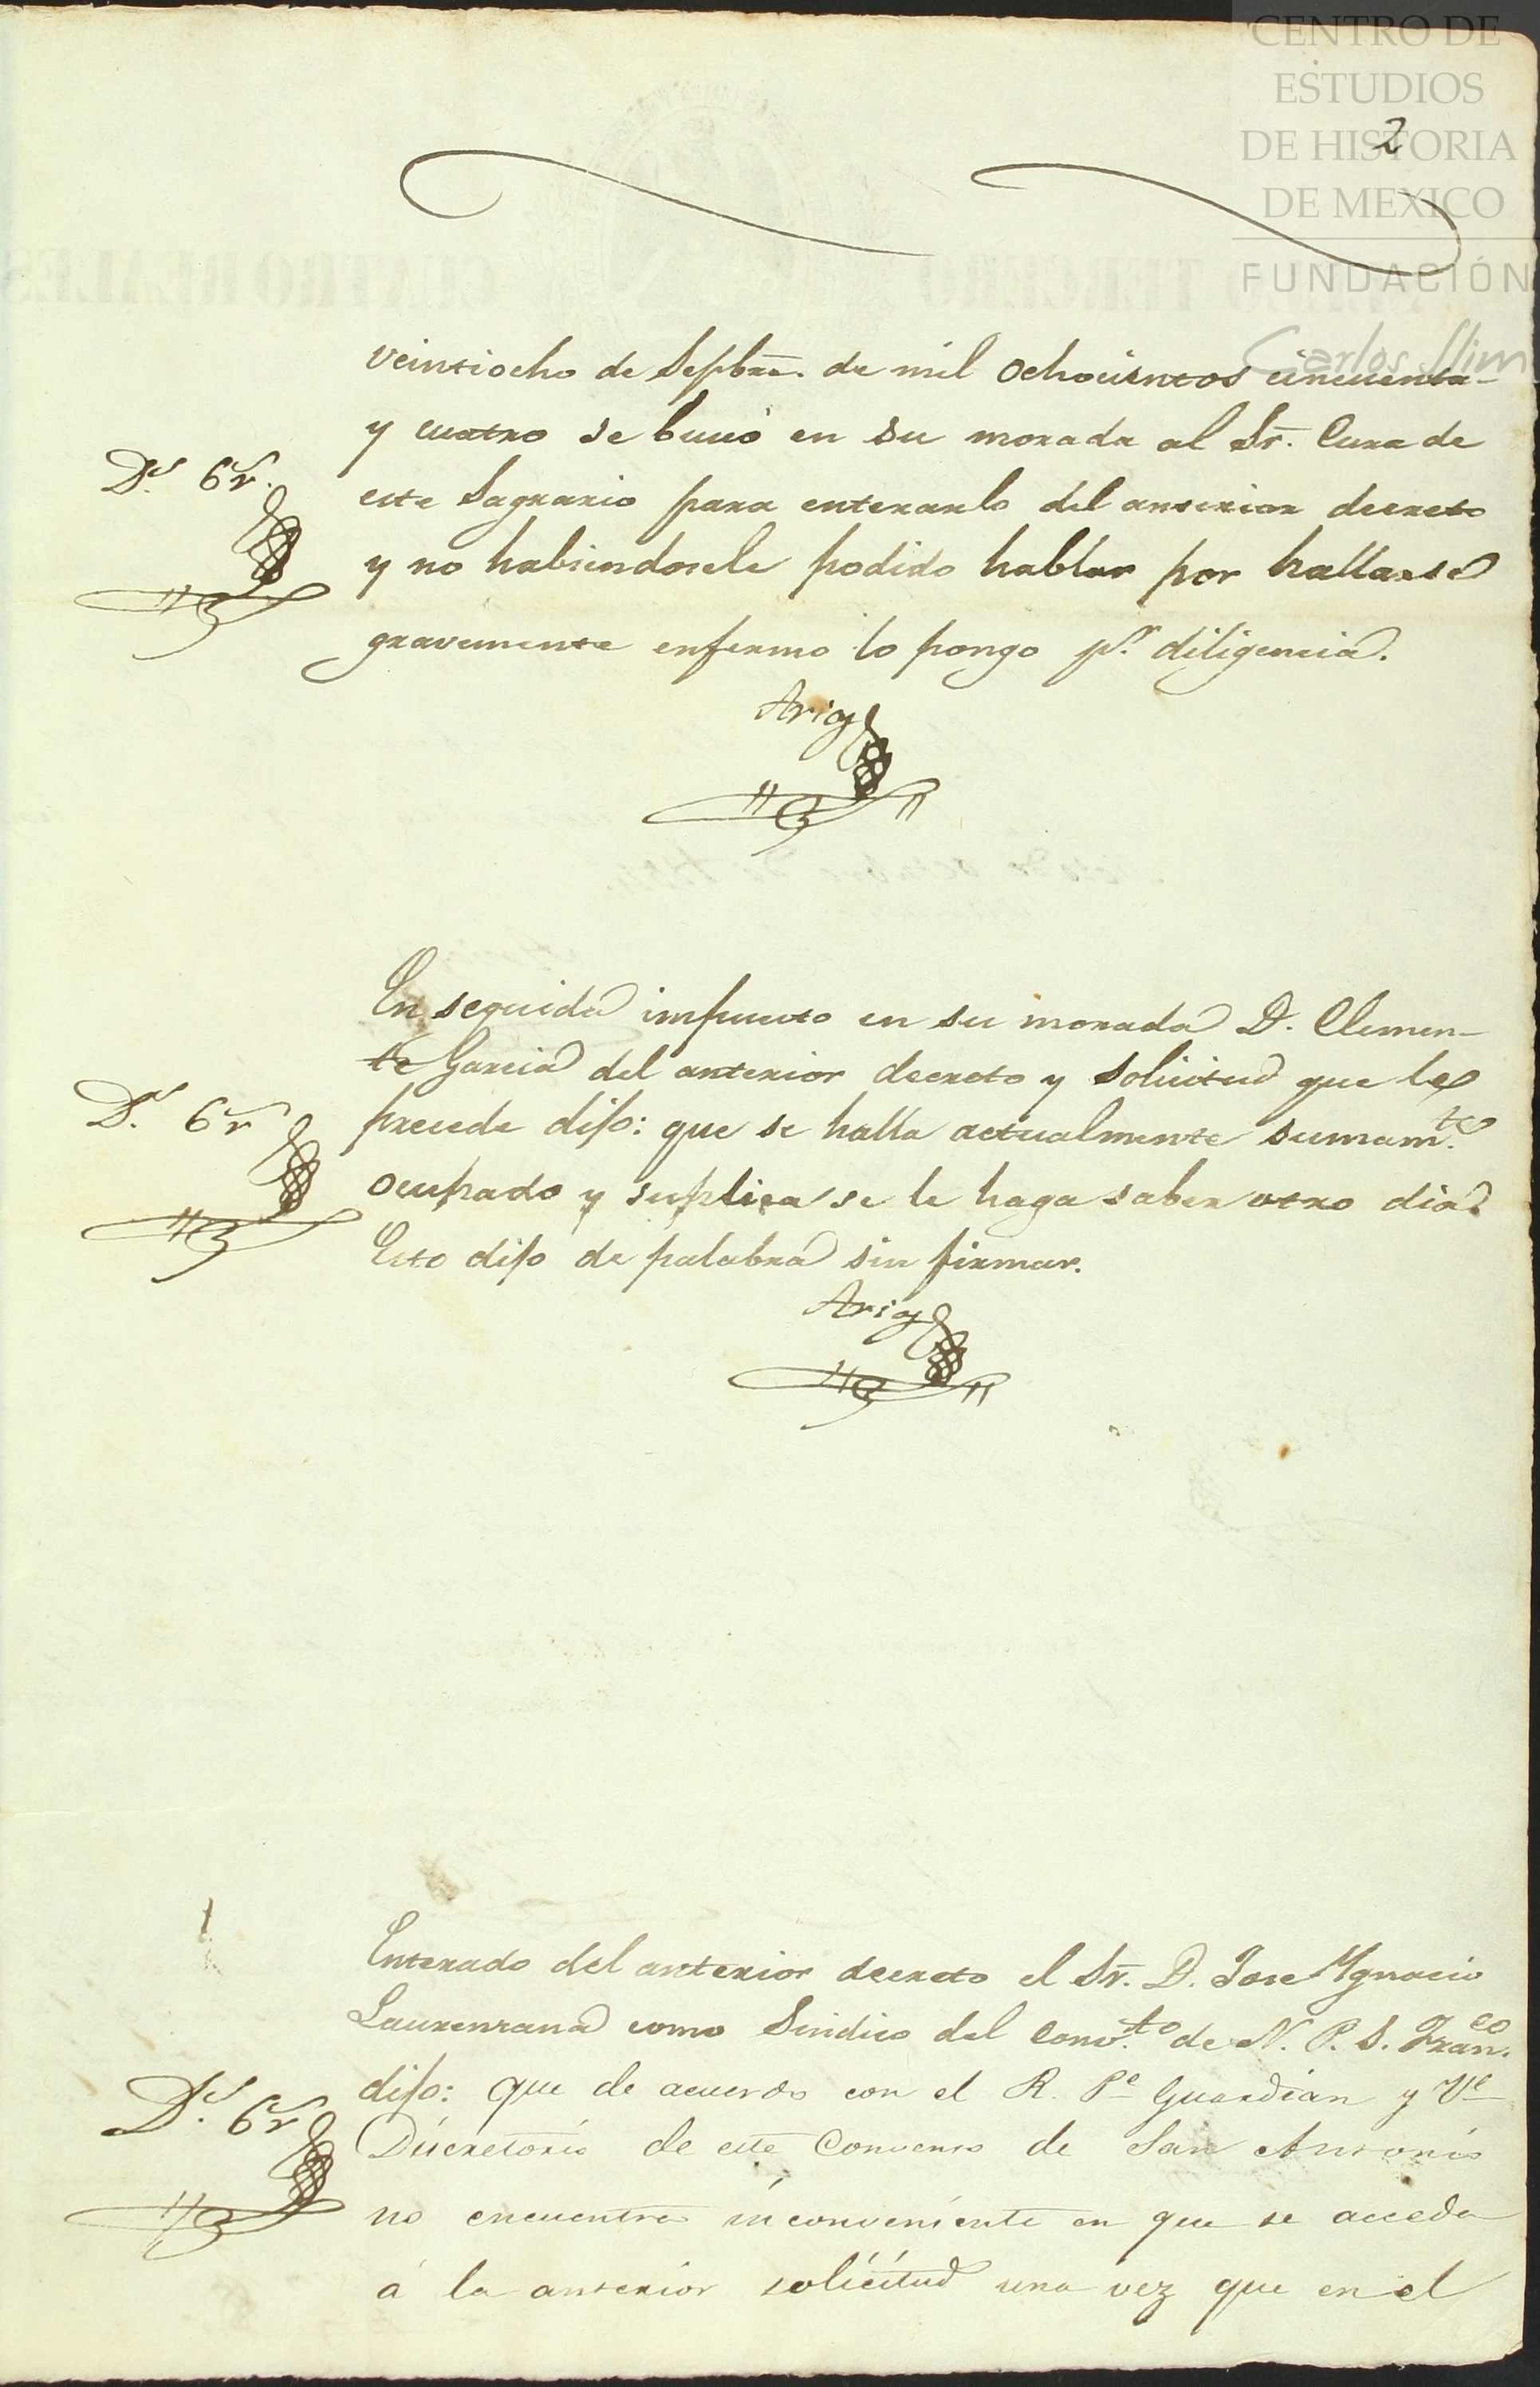 CENTRO DE
ESTUDIOS
DE HISTORIA
DE MEXICO
FUNDACIÓN
Carlos Slim
2
veintiocho de Sepbre. de mil ochocientos cincuenta
y cuatro se buscó en su morada al Sr. Cura de
este Sagrario para enterarlo del anterior decreto
y no habiendosele podido hablar por hallarse
gravemente enfermo lo pongo pr. diligencia.
Ds. 6r.
En seguida impuesto en su morada D. Clemen-
te Garcia del anterior decreto y solicitud que le
precede dijo: que se halla actualmente sumamte.
ocupado y suplica se le haga saber otro dia.
Esto dijo de palabra sin firmar.
Ds. 6r
Enterado del anterior decreto el Sr. D. Jose Ygnacio
Laurenzana como Sindico del Convto. de N. P. S. Franco.
dijo: que de acuerdo con el R. Pe Guardian y Ve
Discretorio de este Convento de San Antonio
no encuentra inconveniente en que se acceda
á la anterior solicitud una vez que en el
Ds. 6r